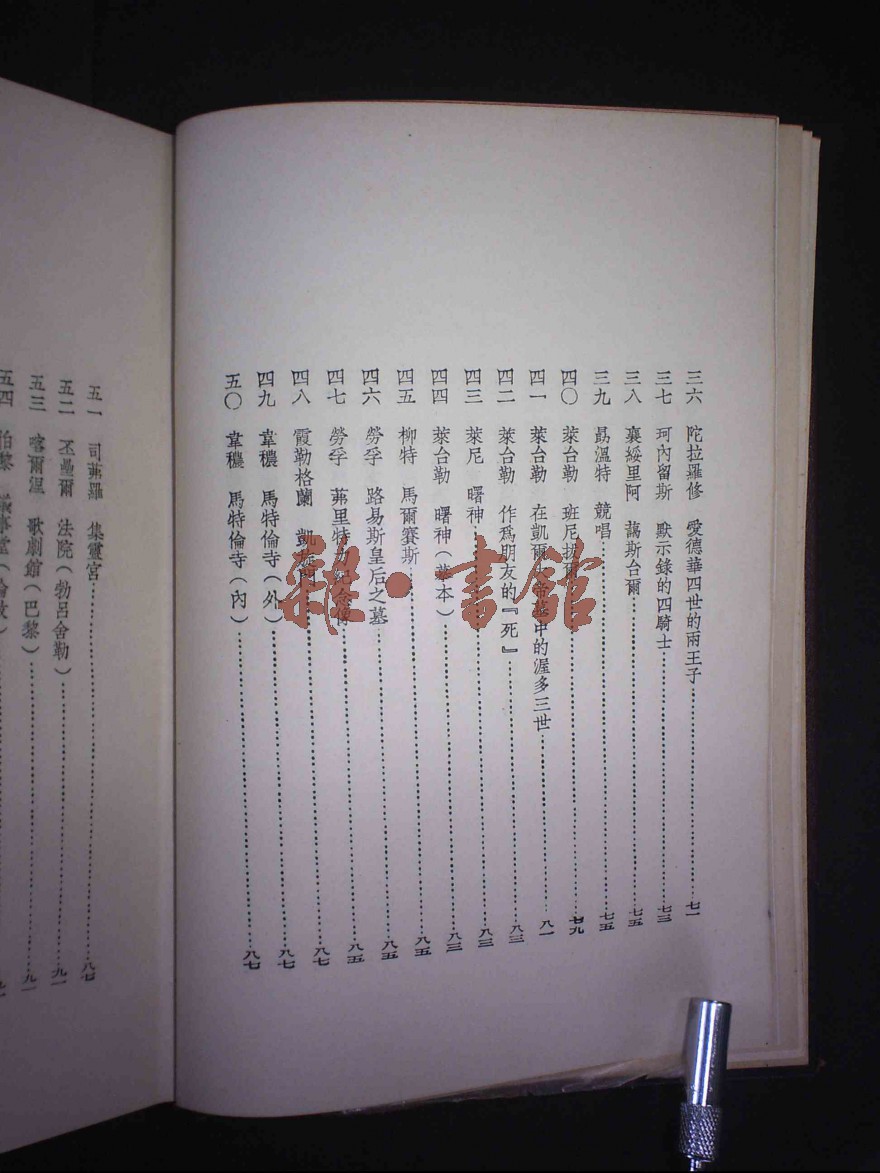 三六 陀拉羅修 愛德華四世的兩王子……七一
三七 珂內留斯 默示錄的四騎士……七三
三八 襄綏里阿 藹斯台爾……七五
三九 勗溫特 競唱……七五
四〇 萊台勒 班尼拔爾……七九
四一 萊台勒 在凱爾大帝墓中的渥多三世……八一
四二 萊台勒 作爲朋友的『死』……八三
四三 萊尼 曙神……八三
四四 萊台勒 曙神(摹本)……八三
四五 柳特 馬爾賽斯……八五
四六 勞孚 路易斯皇后之墓……八五
四七 勞孚 茀里特力紀念像……八五
四八 霞勒格蘭 凱旋門……八七
四九 韋穠 馬特倫寺(外)……八七
五〇 韋穠 馬特倫寺(內)……八七
五一 司茀羅 集靈宮……八七
五二 丕壘爾 法院(勃呂舍勒)……九一
五三 喀爾涅 歌劇館(巴黎)……九一
五四 伯黎
雜·書館